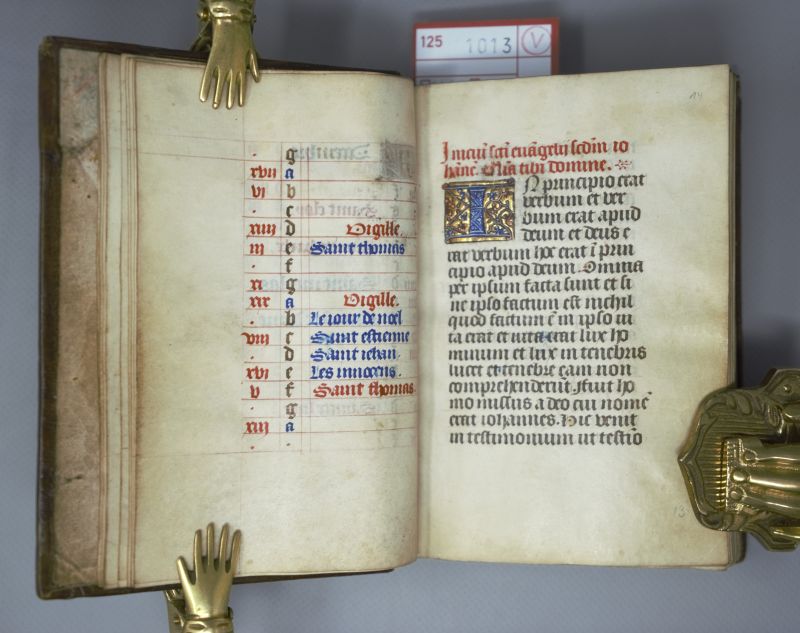 125 1013 V
. g
xvii a
vi b
. c
xiiii d Vigille.
iii e Saint thomas
. f
xi g
xix a Vigille.
. b Le iour de noel
viii c Saint estienne
. d Saint iehan
xvi e Les innocens.
v f Saint thomas.
. g
xiii a
14
Iniciū scī euāgelij scd̄m io
hānē. Glīa tibi domine.
IN principio erat
verbum et ver
bum erat apud
deum et deus e
rat verbum hoc erat ī prin
cipio apud deum. Omnia
per ipsum facta sunt et si
ne ipso factum est nichil
quod factum ē in ipso ui
ta erat et uita erat lux ho
minum et lux in tenebris
lucet et tenebre eam non
comprehenderūt. Fuit ho
mo missus a deo cui nomē
erat iohannes. Hic venit
in testimonium ut testiō
13